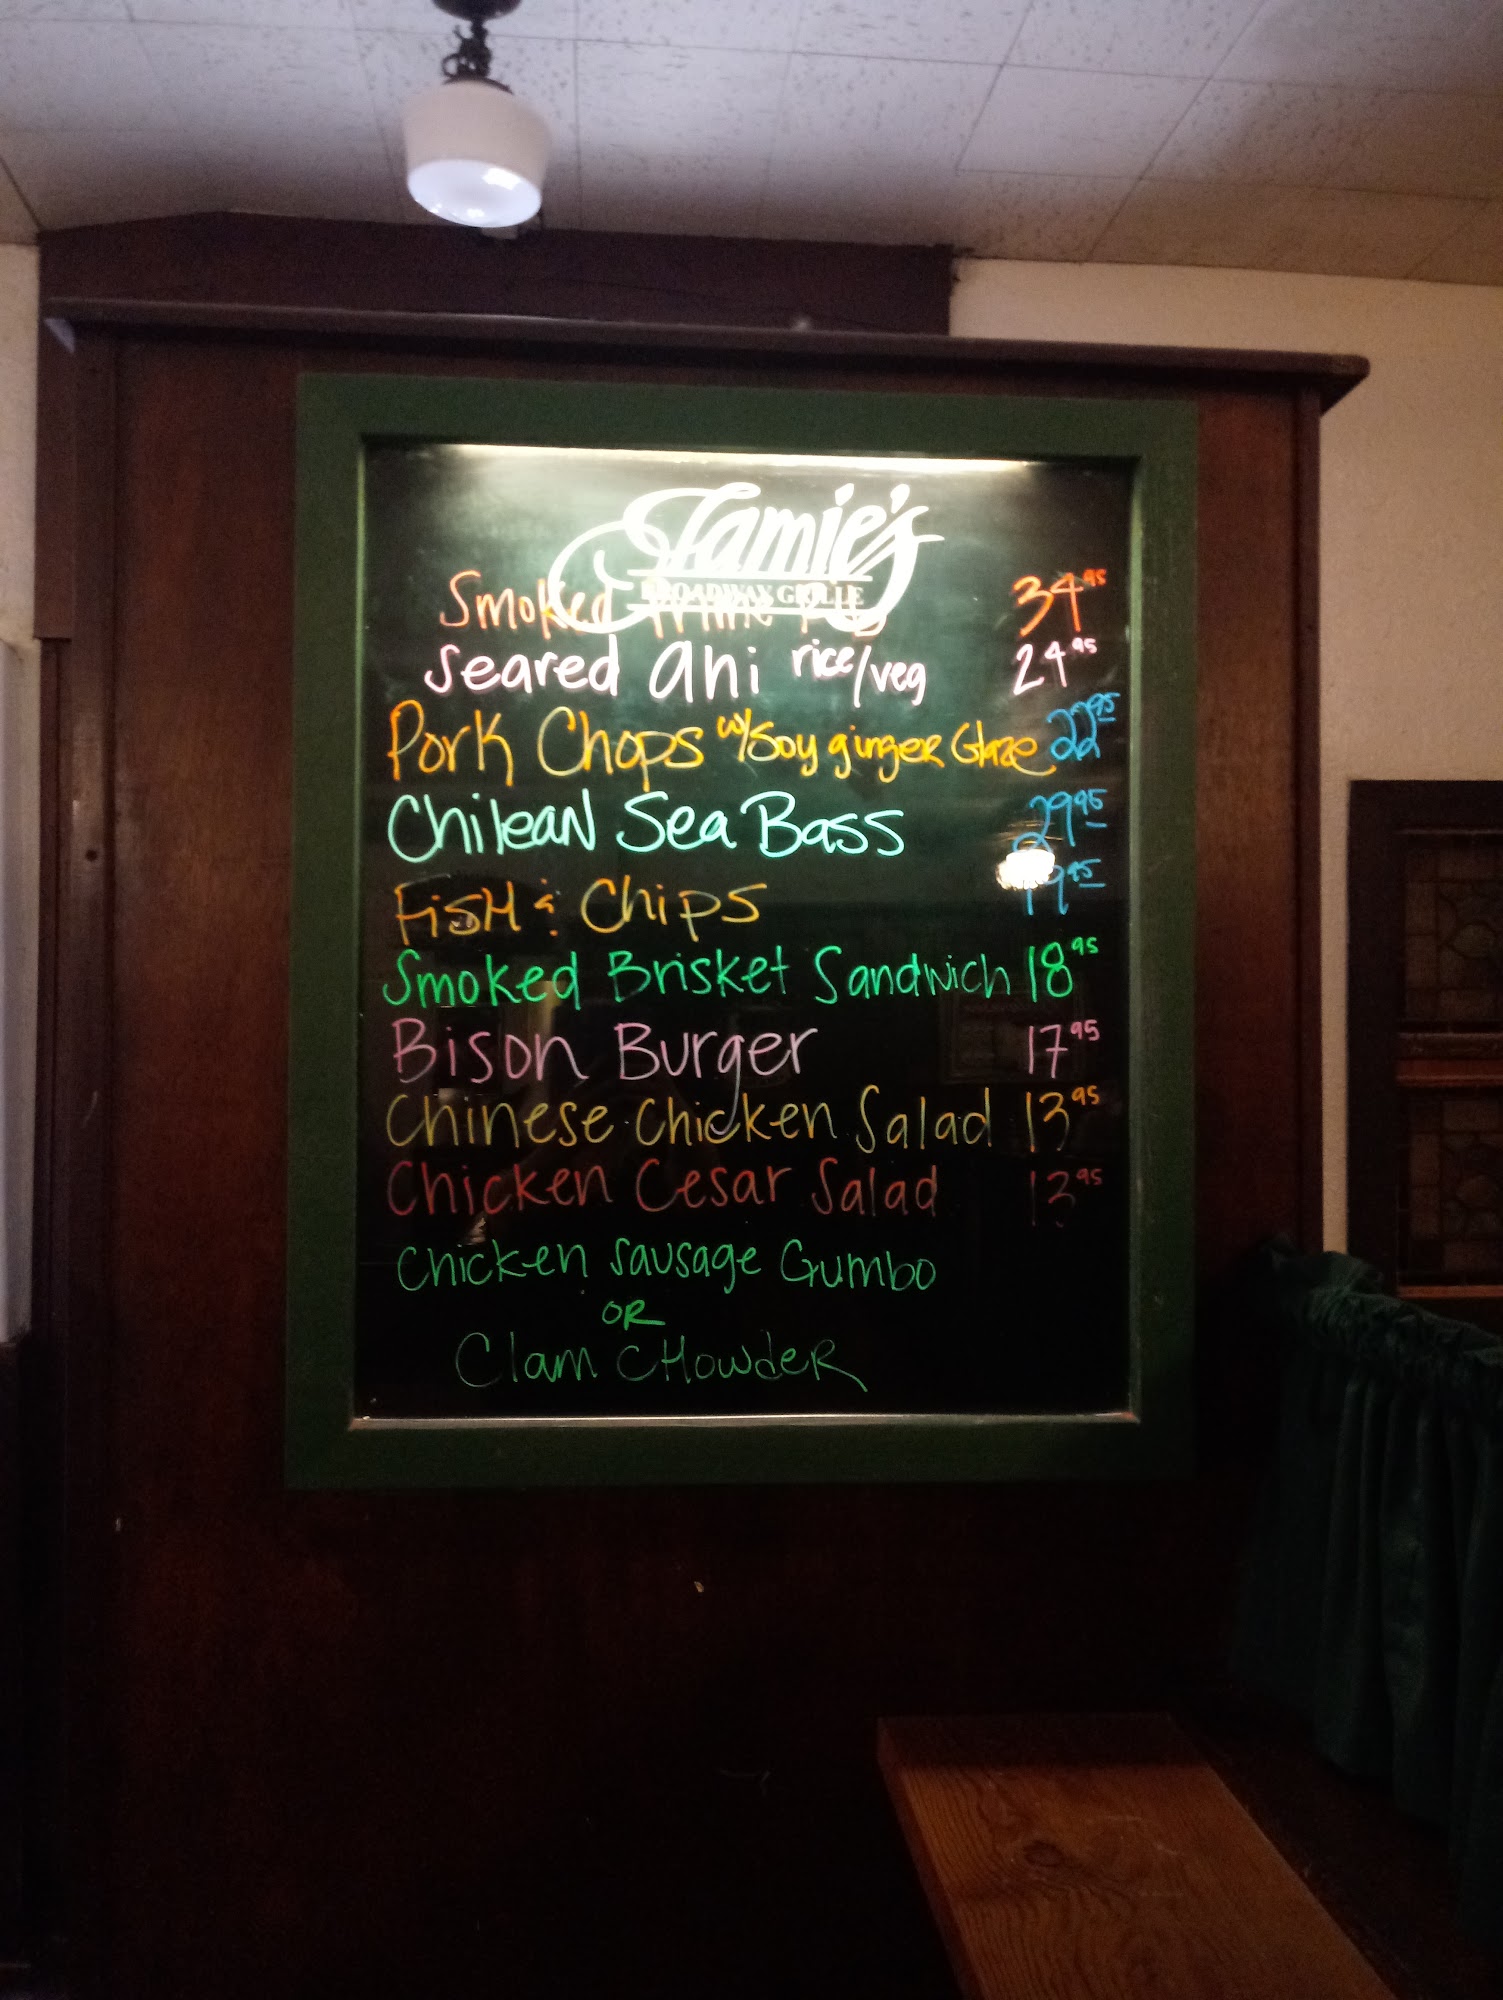 Jamie's
BROADWAY GRILLE
Smoked Prime Rib 34.95
Seared Ahi rice/veg 24.95
Pork Chops w/Soy ginger Glaze 22.95
Chilean Sea Bass 29.95
Fish & Chips 19.95
Smoked Brisket Sandwich 18.95
Bison Burger 17.95
Chinese Chicken Salad 13.95
Chicken Cesar Salad 13.95
Chicken Sausage Gumbo
OR
Clam CHowdeR